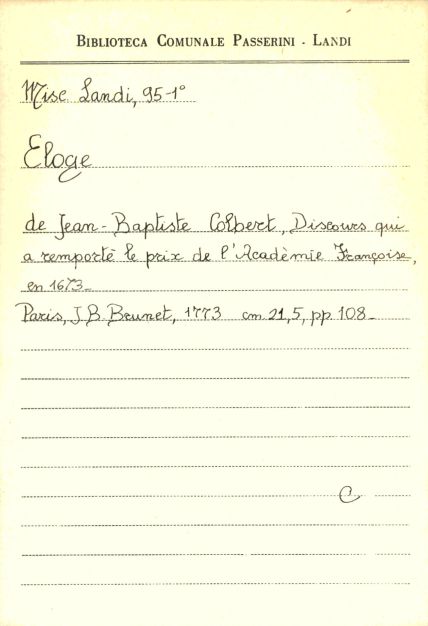 BIBLIOTECA COMUNALE PASSERINI - LANDI
Misc Landi, 95-1°
Eloge
de Jean-Baptiste Colbert, Discours qui
a remporté le prix de l'Acadèmie Françoise,
en 1673-
Paris, J.B. Brunet, 1773 cm 21,5, pp. 108-
C